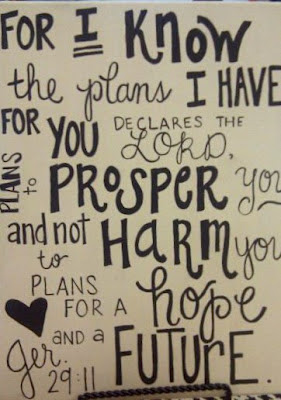 FOR I KNOW
the plans I HAVE
FOR YOU DECLARES THE
LORD,
PLAINS to PROSPER you
and not HARM you
to
PLANS
FOR A hope
AND A FUTURE.
Jer.
29:11